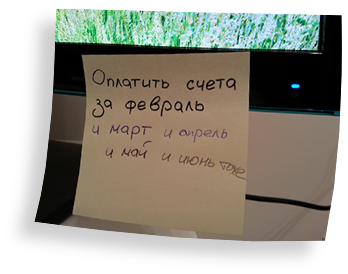 Оплатить счета
за февраль
и март и апрель
и май и июнь тоже